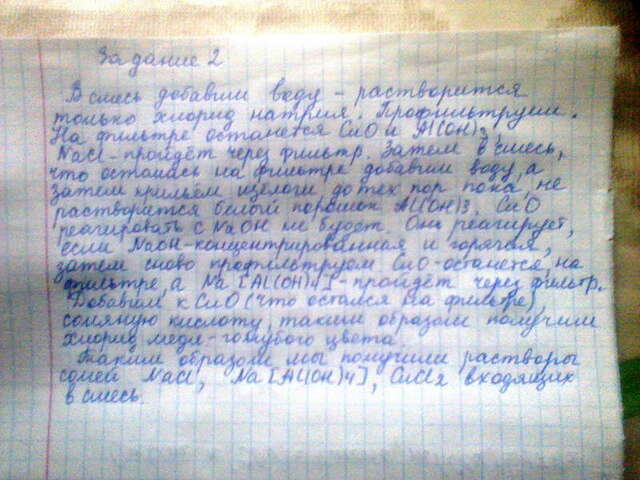 Задание 2
В смесь добавим воду - растворится
только хлорид натрия. Профильтруем.
На фильтре останется CuO и Al(OH)3,
NaCl - пройдёт через фильтр. Затем в смесь,
что осталась на фильтре добавим воду, а
затем щелочи до тех пор пока не
растворится белый порошок Al(OH)3. CuO
реагировать с NaOH не будет. Он реагирует,
если NaOH - концентрированная и горячая
снова профильтруем CuO - останется на
фильтре а Na[Al(OH)4] - пройдёт через фильтр.
Добавим к CuO (что остался на фильтре)
соляную кислоту таким образом получим
хлорид меди - голубого цвета.
Таким образом мы получили растворы
солей NaCl, Na[Al(OH)4], входящих
в смесь.